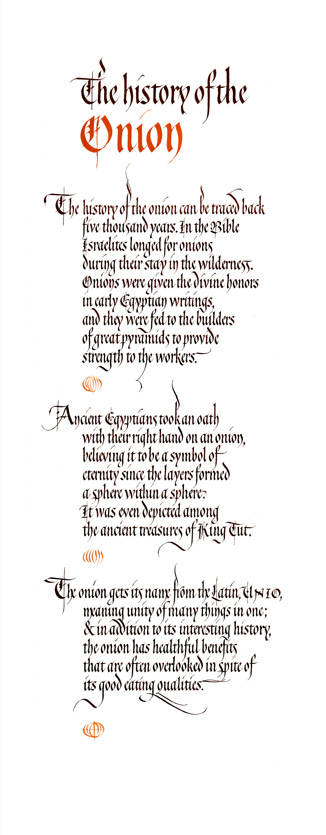 The history of the
Onion
The history of the onion can be traced back
five thousand years. In the Bible
Israelites longed for onions
during their stay in the wilderness.
Onions were given the divine honors
in early Egyptian writings,
and they were fed to the builders
of great pyramids to provide
strength to the workers.
Ancient Egyptians took an oath
with their right hand on an onion,
believing it to be a symbol of
eternity since the layers formed
a sphere within a sphere.
It was even depicted among
the ancient treasures of King Tut.
The onion gets its name from the Latin, UNIO,
meaning unity of many things in one;
& in addition to its interesting history,
the onion has healthful benefits
that are often overlooked in spite of
its good eating qualities.